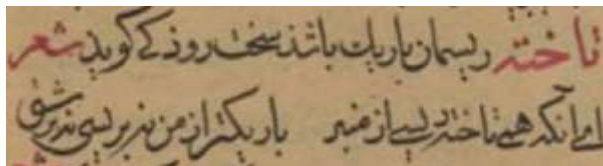 تاخته ریسمان باریك باشد سخت روذکی کویذ شعر
ای آنکه همی تاخته ریسی از منبر باریکتر از من نبر یسی نبر شق